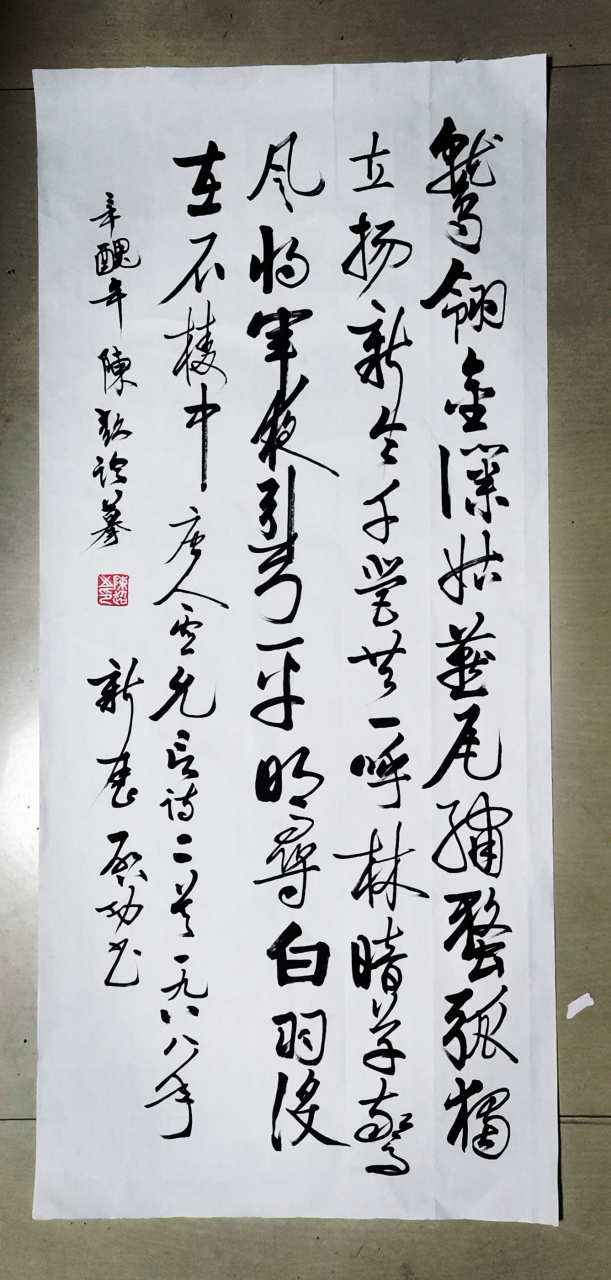 鷲翎金僕姑燕尾繡蝥弧獨
立扬新令千營共一呼林暗草驚
风将軍夜引弓平明尋白羽没
在石棱中 唐人卢允言詩二首一九八八年
新春启功书
辛醜年陳 摹